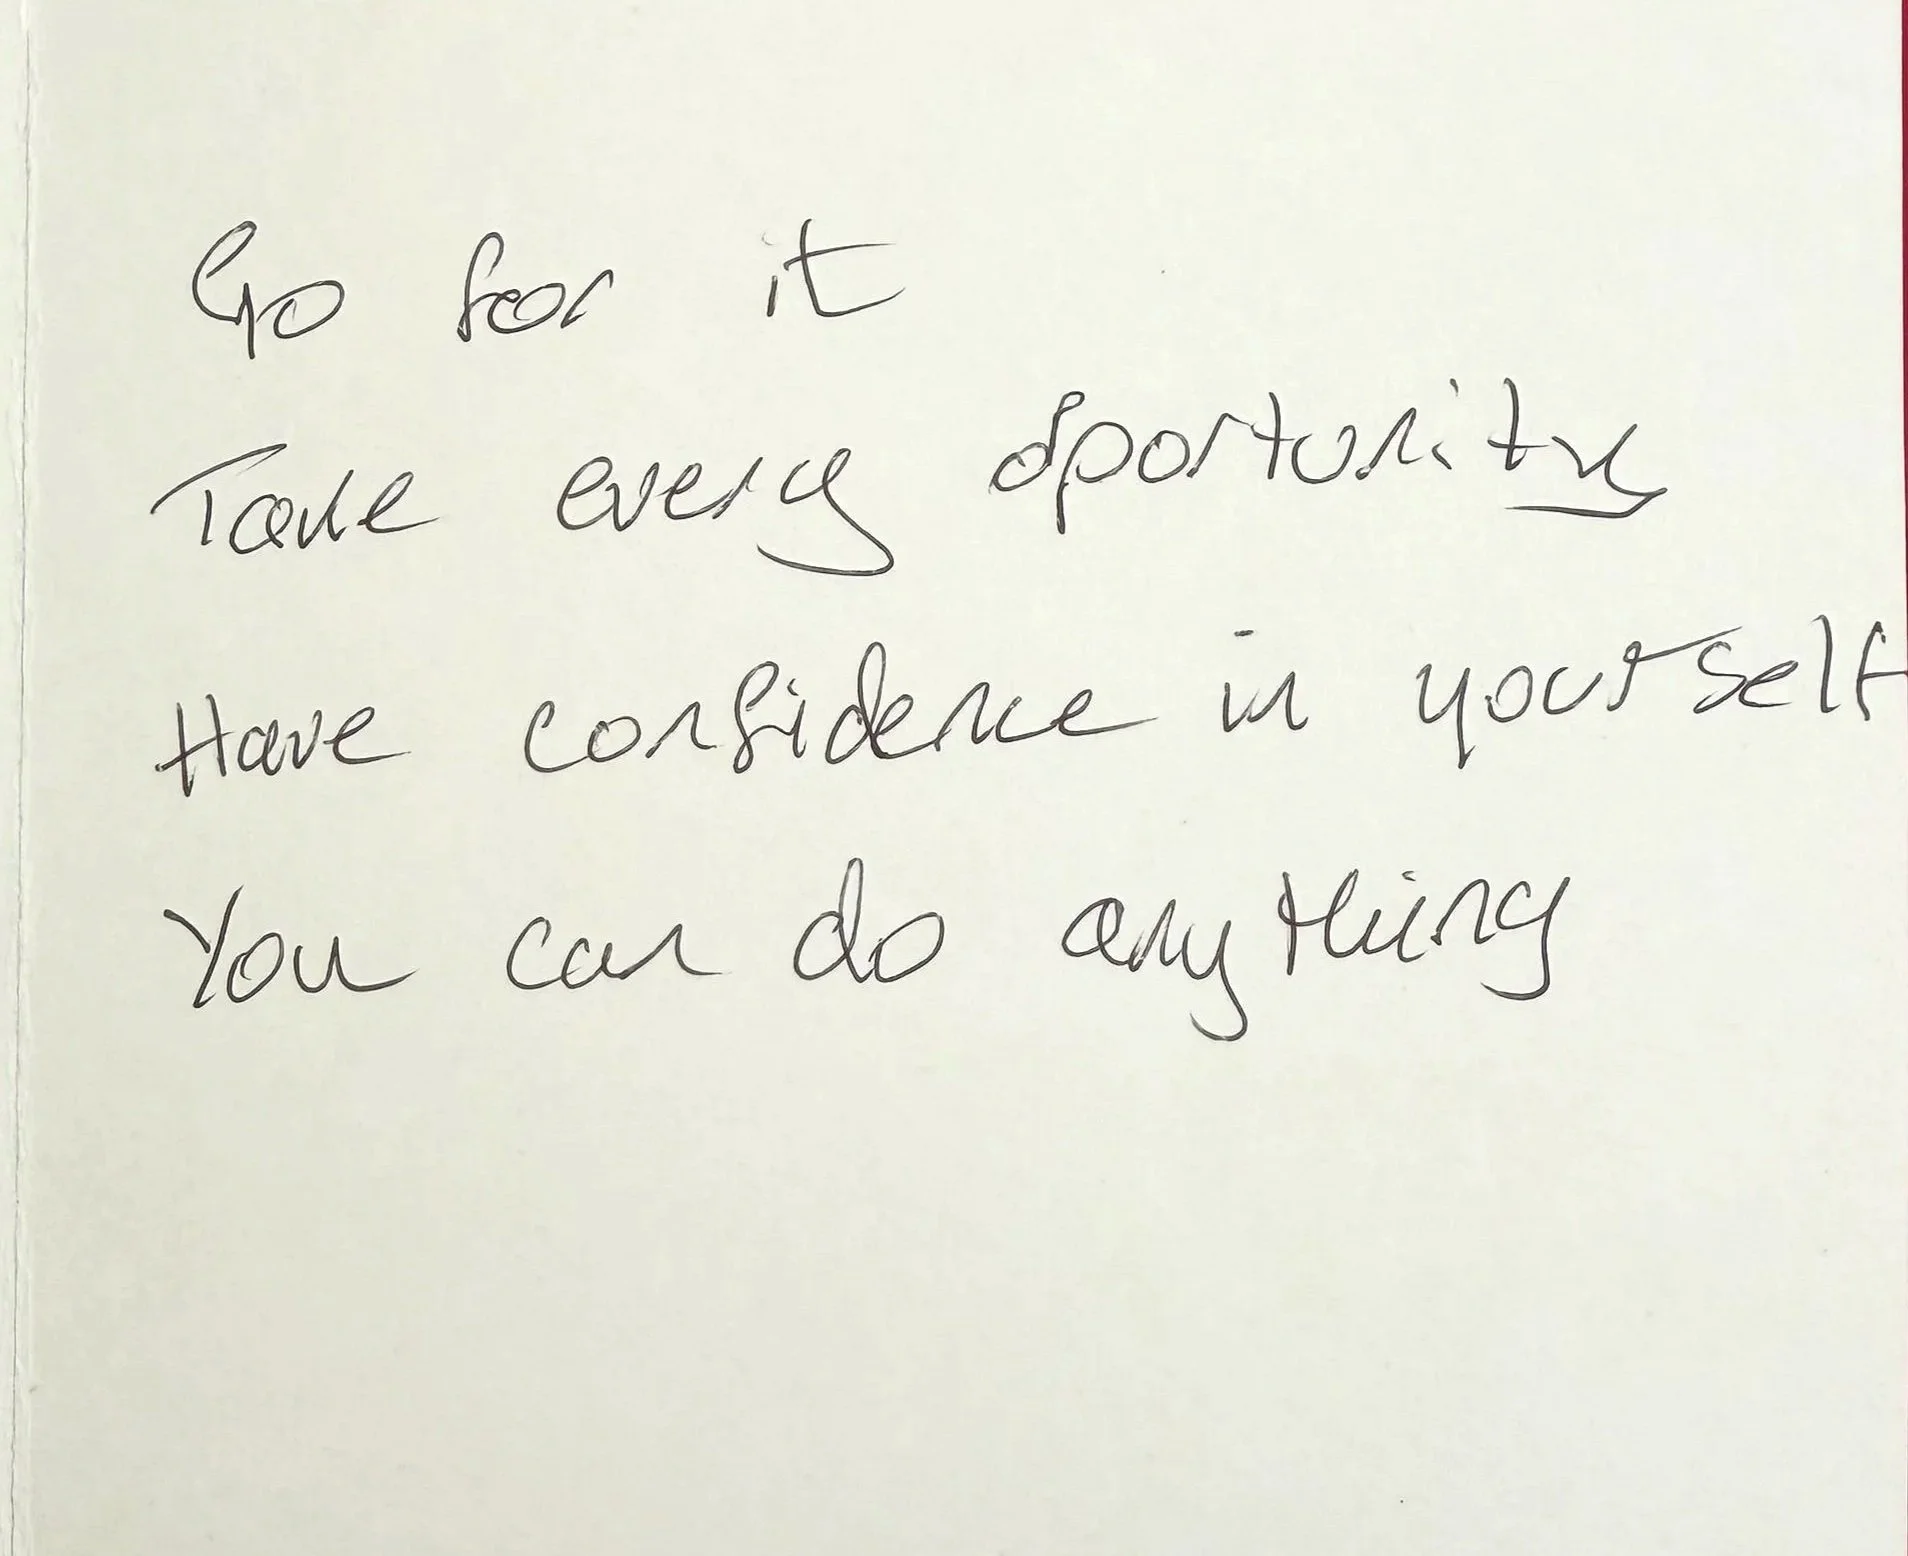 Go for it
Take every oportunity
Have confidence in yourself
You can do anything